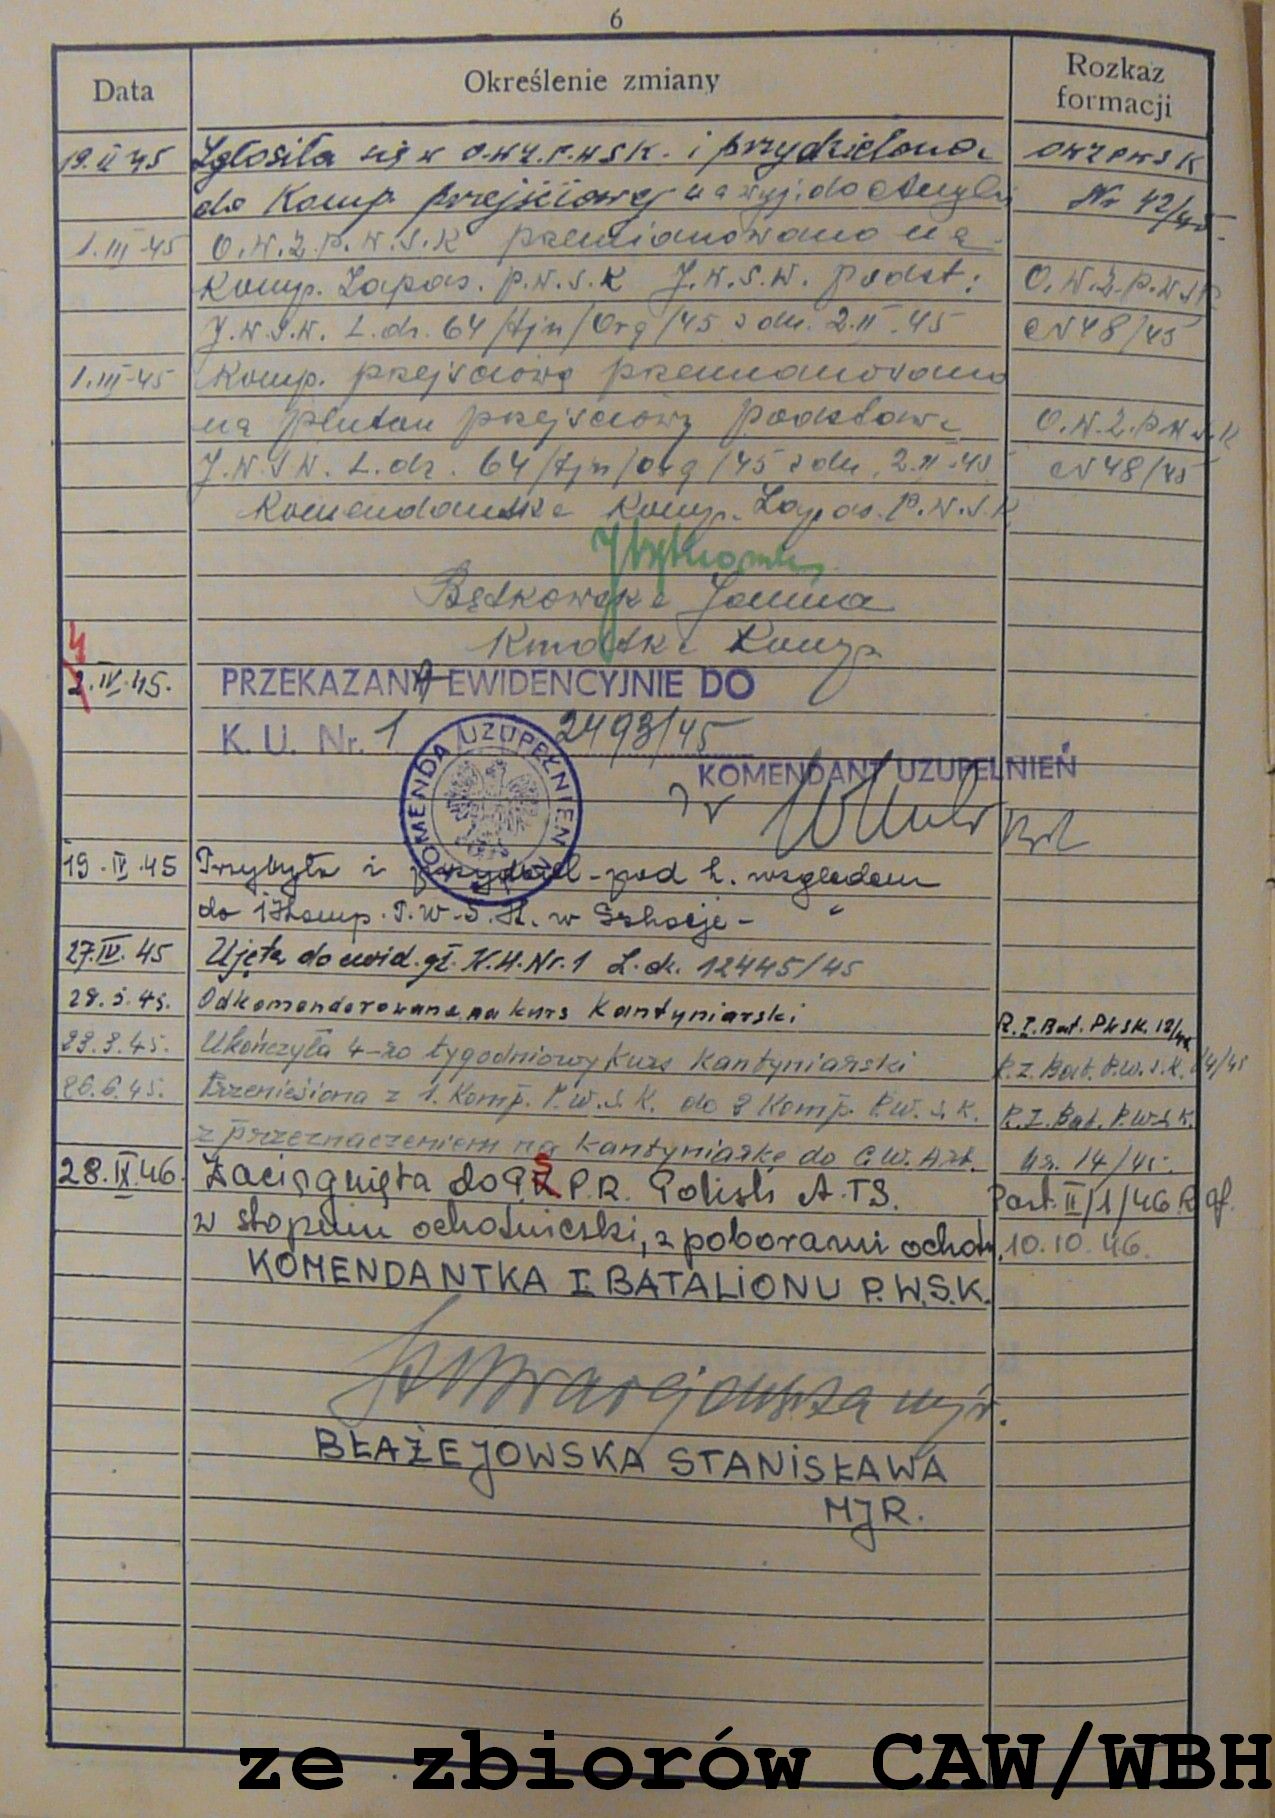 6
Data Określenie zmiany Rozkaz formacji
19.II 45 Zgłosiła się w O.W.Z.P.W.S.K. i przydzielona O.W.Z.P.W.S.K
do Komp. przejściowej na wyj. do Anglii Nr 42/45.
1.III-45 O.W.Z.P.W.S.K przemianowano na
Komp. Zapas. P.W.S.K J.W.S.W. podst: O.W.Z.P.W.S.K
J.W.S.W. L.dz. 64/tjn/Org/45 z dn. 2.II.45 N 48/45
1.III-45 Komp. przejściową przemianowano
na pluton przejściowy podstaw. O.W.Z.P.W.S.K
J.W.S.W. L.dz. 64/tjn/org/45 z dn. 2.II-45 N 48/45
Komendantka Komp. Zapas. P.W.S.K
Bątkowska Janina
Kmdtka Komp.
4
2.IV.45. PRZEKAZANA EWIDENCYJNIE DO
K. U. Nr. 1 2493/45
KOMENDA UZUPEŁNIEŃ
KOMENDANT UZUPEŁNIEŃ
19.IV.45 Przybyła i przydziel. pod k. względem
do 1 Komp. P.W.S.K. w Szkocji -
27.IV.45 Ujęta do ewid. gł. K.U.Nr.1 L.dz. 12445/45
28.5.45. Odkomenderowana na kurs Kantyniarski R.I.Bat. PWSK. 12/45
23.8.45. Ukończyła 4-ro tygodniowy kurs kantyniarski R.I. Bat. P.W.S.K. 14/45
26.6.45. Przeniesiona z 1. Komp. P.W.S.K. do 8 Komp. P.W.S.K. R.I. Bat. P.W.S.K.
z przeznaczeniem na kantyniarkę do C.W.Art. Nr. 14/45.
28.IX.46. Zaciągnięta do P.S P.R. Polish A.T.S. Part.II/1/46 R.Of.
w stopniu ochotniczki, z poborami ochotn. 10.10.46.
KOMENDANTKA I. BATALIONU P.W.S.K.
mjr.
BŁAŻEJOWSKA STANISŁAWA
MJR.
ze zbiorów CAW/WBH